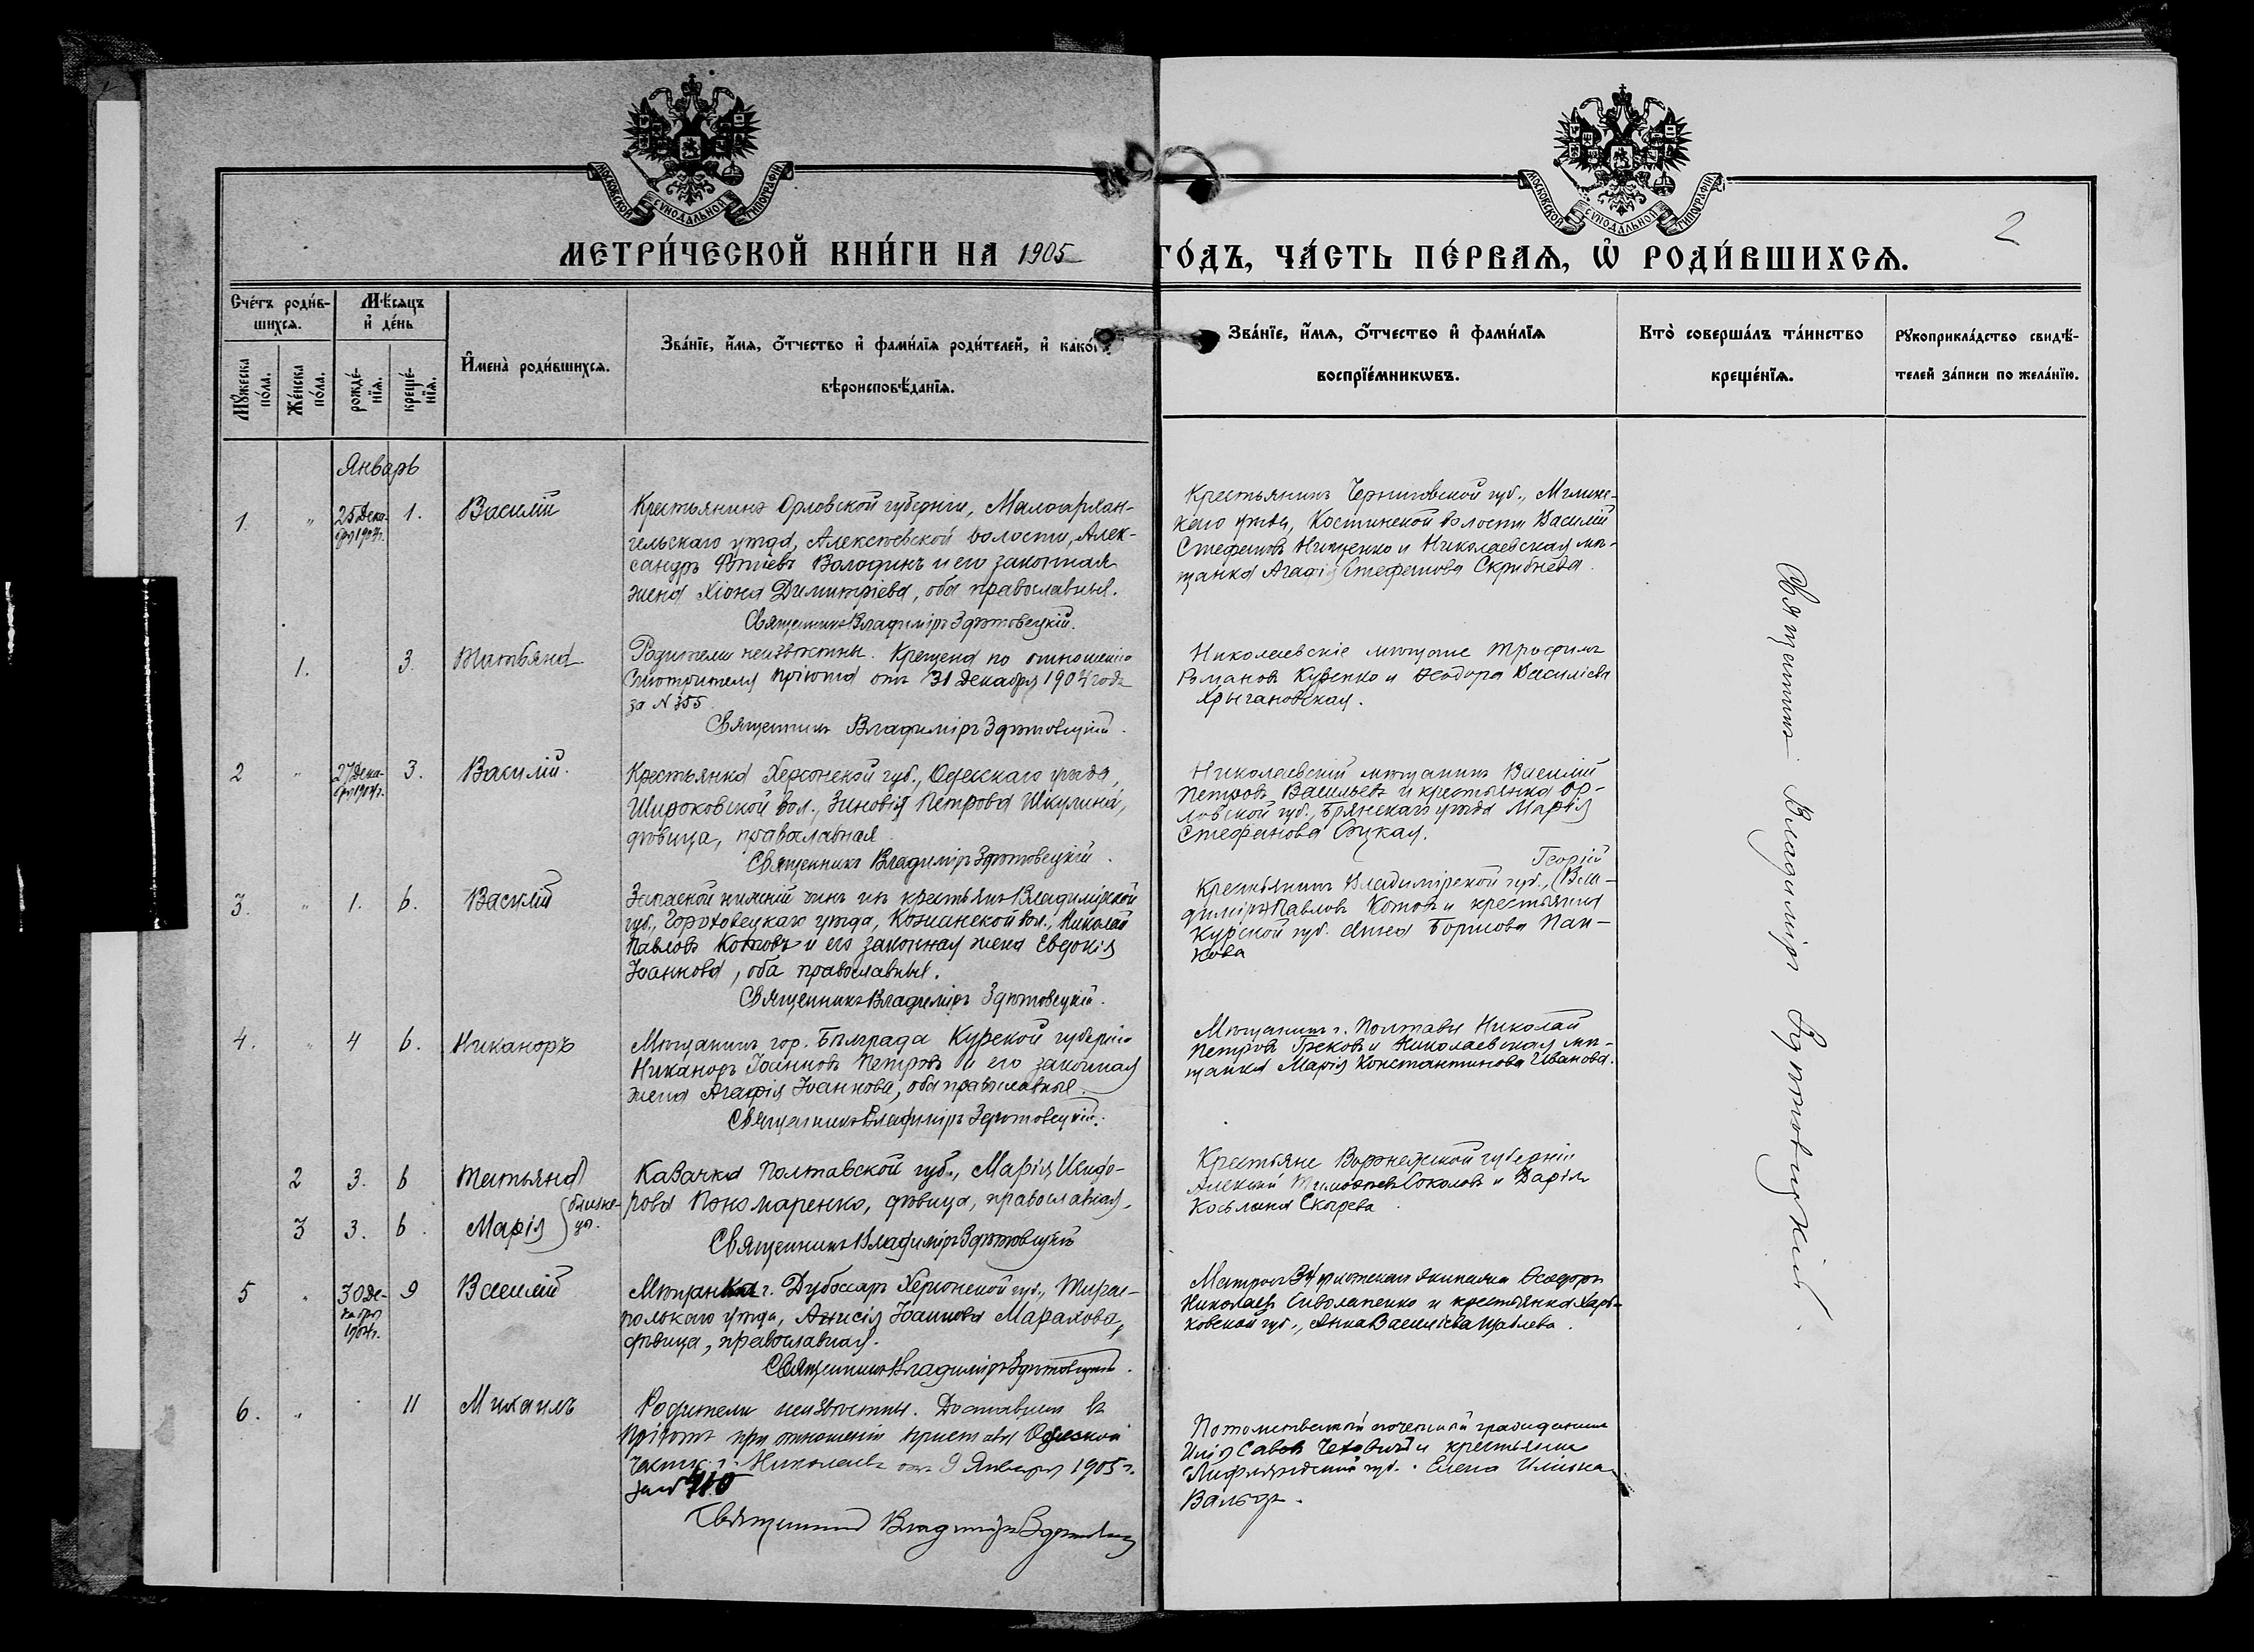 МОСКОВСКОЙ СѴНОДАЛЬНОЙ ТИПОГРАФІИ
МОСКОВСКОЙ СѴНОДАЛЬНОЙ ТИПОГРАФІИ
2
МЕТРИ́ЧЕСКОЙ КНИ́ГИ НА 1905 ГО́ДЪ, ЧА́СТЬ ПЕ́РВАѦ, Ѽ РОДИ́ВШИХСѦ.
Сче́тъ роди́в-
шихсѧ.
Мꙋ́жеска по́ла.
Же́нска по́ла.
Мѣ́сѧцъ
и҆ де́нь
рожде́-
нїѧ.
креще́-
нїѧ.
И҆мена̀ роди́вшихсѧ.
Зва́нїе, и҆́мѧ, ѻ҆́тчество и҆ фами́лїѧ роди́телей, и҆ како́гѡ
вѣроисповѣ́данїѧ.
Зва́нїе, и҆́мѧ, ѻ҆́тчество и҆ фами́лїѧ
воспрїе́мникѡвъ.
Кто̀ соверша́лъ та́инство
креще́нїѧ.
Рꙋкоприкла́дство свидѣ́-
телей за́писи по жела́нїю.
Январь
1. " 25 Дека-
бря 1904 г. 1. Василій
Крестьянинъ Орловской губерніи, Малоархан-
гельскаго уѣзда, Алексѣевской волости, Алек-
сандръ Володинъ и его законная
жена Хіона Димитріева, оба православные.
Священникъ Владиміръ Здѣтовецкій.
Крестьянинъ Черниговской губ., Мглинс-
каго уѣзда, Костинской волости Василій
Стефановъ Нищенко и Николаевская мѣ-
щанка Агафія Стефанова Скрибнева.
1. 3. Татьяна
Родители неизвѣстны. Крещена по отношенію
Смотрителя пріюта отъ 31 Декабря 1904 года
за N 355.
Священникъ Владиміръ Здѣтовецкій.
Николаевскіе мѣщане Трофимъ
Романовъ Куценко и Ѳеодора Василіева
Хрыгановская.
2 " 27 Дека-
бря 1904 г. 3. Василій.
Крестьянка Херсонской губ., Одесскаго уѣзда,
Широковской вол., Зиновія Петрова Шкулина,
дѣвица, православная.
Священникъ Владиміръ Здѣтовецкій.
Николаевскій мѣщанинъ Василій
Петровъ Васильевъ и крестьянка Ор-
ловской губ., Брянскаго уѣзда Марія
Стефанова
3. " 1. 6. Василій
Запасной нижній чинъ изъ крестьянъ Владимірской
губ., Гороховецкаго уѣзда, Кожинской вол., Николай
Павловъ Котовъ и его законная жена Евдокія
Іоаннова, оба православные.
Священникъ Владиміръ Здѣтовецкій.
Георгій
Крестьянинъ Владимірской губ., (Вла-
диміръ) Павловъ Котовъ и крестьянка
Курской губ. Анна Борисова Пан-
кова
4. " 4 6. Никаноръ
Мѣщанинъ гор. Бѣлграда Курской губерніи
Никаноръ Іоанновъ Петровъ и его законная
жена Агафія Іоаннова, оба православные.
Священникъ Владиміръ Здѣтовецкій.
Мѣщанинъ г. Полтавы Николай
Петровъ Грековъ и Николаевская мѣ-
щанка Марія Константинова Иванова.
2 3. 6 Татьяна
3 3. 6. Марія } близне-
цы.
Казачка Полтавской губ., Марія Исидо-
рова Пономаренко, дѣвица, православная.
Священникъ Владиміръ Здѣтовецкій
Крестьяне Воронежской губерніи
Алексій Тимоѳеевъ Соколовъ и Дарія
Косьмина
5 " 30 Де-
кабря
1904 г. 9 Василій
Мѣщанка г. Дубоссаръ Херсонской губ., Тирас-
польскаго уѣзда, Анисія Іоаннова Марахова,
дѣвица, православная.
Священникъ Владиміръ Здѣтовецкій.
Матросъ флотскаго экипажа Ѳеодоръ
Николаевъ Сиволапенко и крестьянка Харь-
ковской губ., Анна Василіева
6. " 11 Михаилъ
Родители неизвѣстны. Доставленъ въ
пріютъ при отношеніи пристава Одесской
части г. Николаева отъ 9 Января 1905 г.
за N 710
Священникъ Владиміръ Здѣтовецкій
Потомственный почетный гражданинъ
Илія Савовъ Чеховичъ и крестьянка
Лифляндской губ. Елена
Вальдъ.
Священникъ Владиміръ Здѣтовецкій.